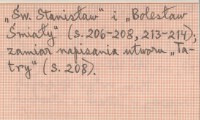 „Św. Stanisław" i „Bolesław
Śmiały" (s. 206-208, 213-214),
zamiar napisania utworu „Ta-
try" (s. 208).